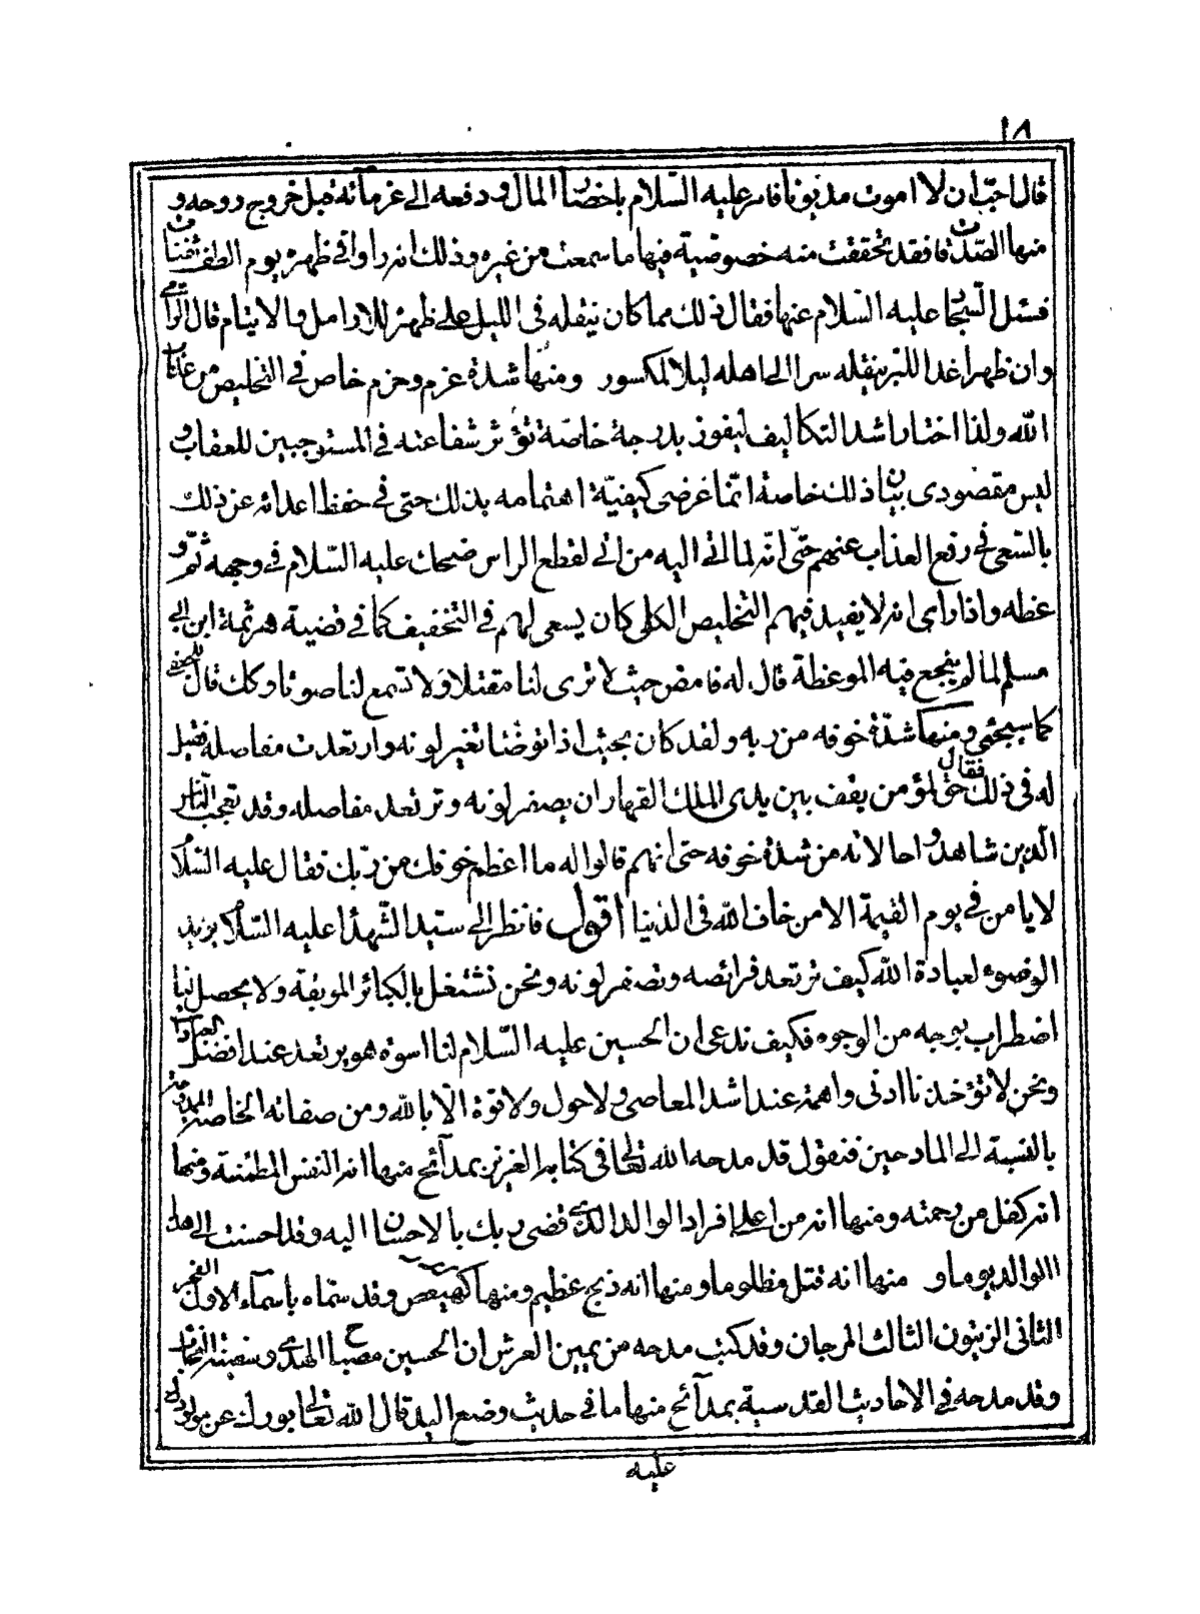 ١٨
قال احب ان لا اموت مديونا فامر عليه السّلام باحضار المال و دفعه الى غرمائه قبل خروج روحه و
منها الصّدقات فقد تحققت منه خصوصية فيها ما سمعت من غيره وذلك انه راوا فى ظهره يوم الطف ثفنات
فسئل السجّاد عليه السّلام عنها فقال ذلك مما كان ينقله فى الليل على ظهره للارامل والايتام قال الراوى
وان ظهرا غدا للبر ينقله سرا الى اهله ليلا لمكسور ومنها شدة عزم وحزم خاص فى التخليص من عذاب
الله ولذا اختار اشد التكاليف ليفوز بدرجة خاصّة تؤثر شفاعته فى المستوجبين للعقاب و
ليس مقصودى بيان ذلك خاصة انّما غرضى كيفيّة اهتمامه بذلك حتى فى حفظ اعدائه عن ذلك
بالسّعى فى رفع العذاب عنهم حتّى انّه لما اتى اليه من اتى لقطع الراس ضحك عليه السّلام فى وجهه ثمّ و
عظه واذا راى انه لا يفيد فيهم التخليص الكلى كان يسعى لهم فى التخفيف كما فى قضية هرثمة ابن ابى
مسلم لما لم ينجع فيه الموعظة قال له فامض حيث لا ترى لنا مقتلا ولا تسمع لنا صوتا وكك قال للجعفى
كما سيجئ ومنها شدّة خوفه من ربه ولقد كان بحيث اذا توضّا تغير لونه وارتعدت مفاصله فقيل
له فى ذلك فقال حق لمؤمن يقف بين يدى الملك القهار ان يصفر لونه وترتعد مفاصله وقد تعجب الناس
الّذين شاهدوا حالاته من شدة خوفه حتى انهم قالوا له ما اعظم خوفك من ربّك فقال عليه السّلام
لا يا من فى يوم القيمة الا من خاف الله فى الدّنيا اقول فانظر الى سيد الشّهداء عليه السّلام يريد
الوضوء لعبادة الله كيف ترتعد فرائصه وتصفر لونه ونحن نشتغل بالكبائر الموبقة ولا يحصل لنا
اضطراب بوجه من الوجوه فكيف ندعى ان الحسين عليه السّلام لنا اسوة هو يرتعد عند افضل العبادات
ونحن لا تؤخذنا ادنى واهمة عند اشد المعاصى ولا حول ولا قوة الّا بالله ومن صفاته الخاصة الممدوحية
بالنسبة الى المادحين فنقول قد مدحه الله تعالى فى كتابه العزيز بمدآئح منها انه النفس المطمئنة ومنها
انه كفل من رحمته ومنها انه من اعلى افراد الوالد الذى قضى ربك بالاحسان اليه وقد احسنت الى هذا
الوالد يوما و منها انه قتل مظلوما ومنها انه ذبح عظيم ومنها كهيعص وقد سمّاه باسمآء الاول الفجر
الثانى الزيتون الثالث المرجان وقد كتب مدحه من يمين العرش ان الحسين مصباح الهدى وسفينة النجاة
وقد مدحه فى الاحاديث القدسية بمدآئح منها ما فى حديث وضع اليد قال الله تعالى بورك من مولود
عليه